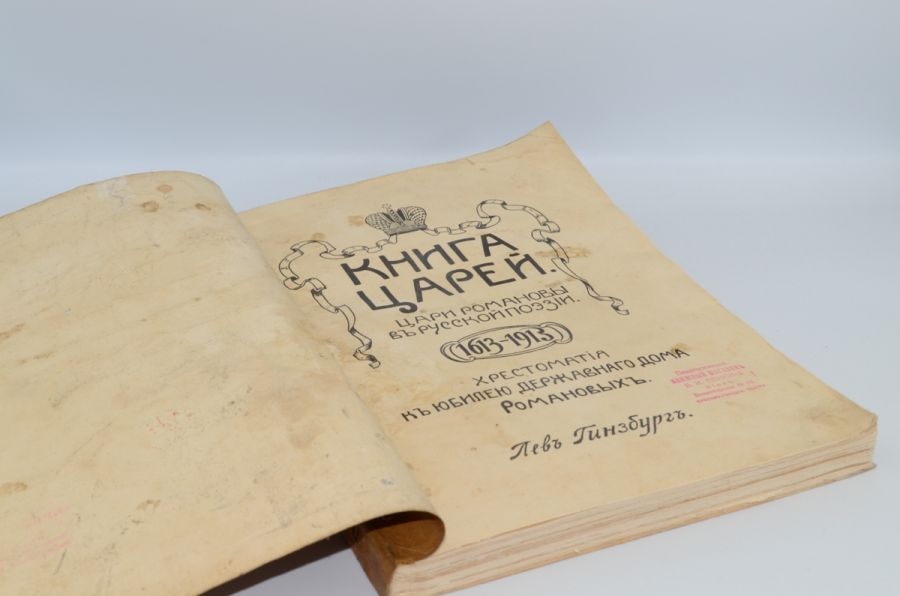 КНИГА
ЦАРЕЙ.
ЦАРИ РОМАНОВЫ
ВЪ РУССКОЙ ПОЭЗІИ.
1613-1913
ХРЕСТОМАТІЯ
КЪ ЮБИЛЕЮ ДЕРЖАВНАГО ДОМА
РОМАНОВЫХЪ.
Левъ Гинзбургъ.